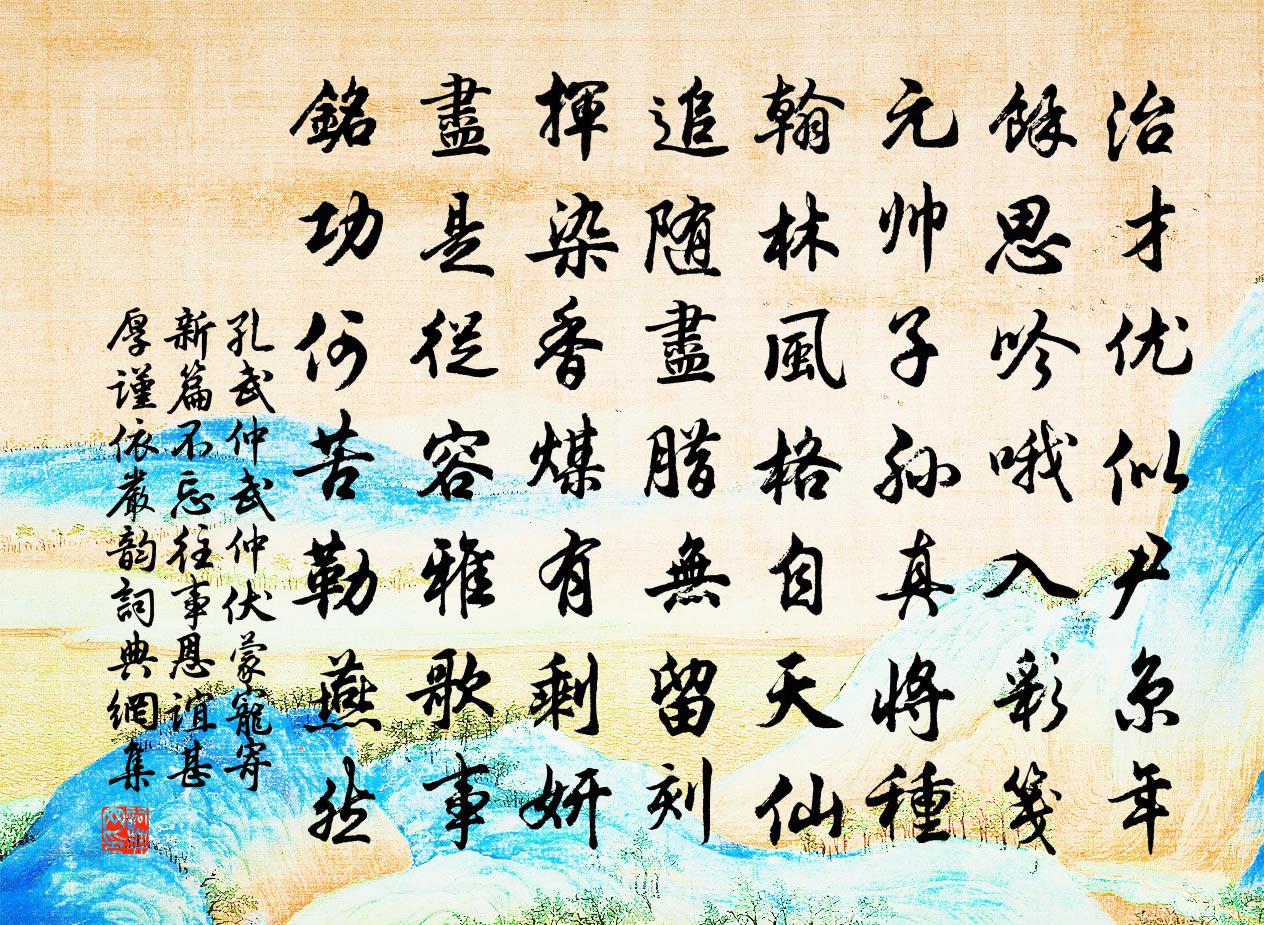 治才优似尹京年
餘思吟哦入彩箋
元帅子孙真将種
翰林風格自天仙
追随盡腊無留刻
揮染香煤有剩妍
盡是從容雅歌事
銘功何苦勒燕然
孔武仲武仲伏蒙寵寄
新篇不忘往事恩誼甚
厚謹依嚴韵詞典網集